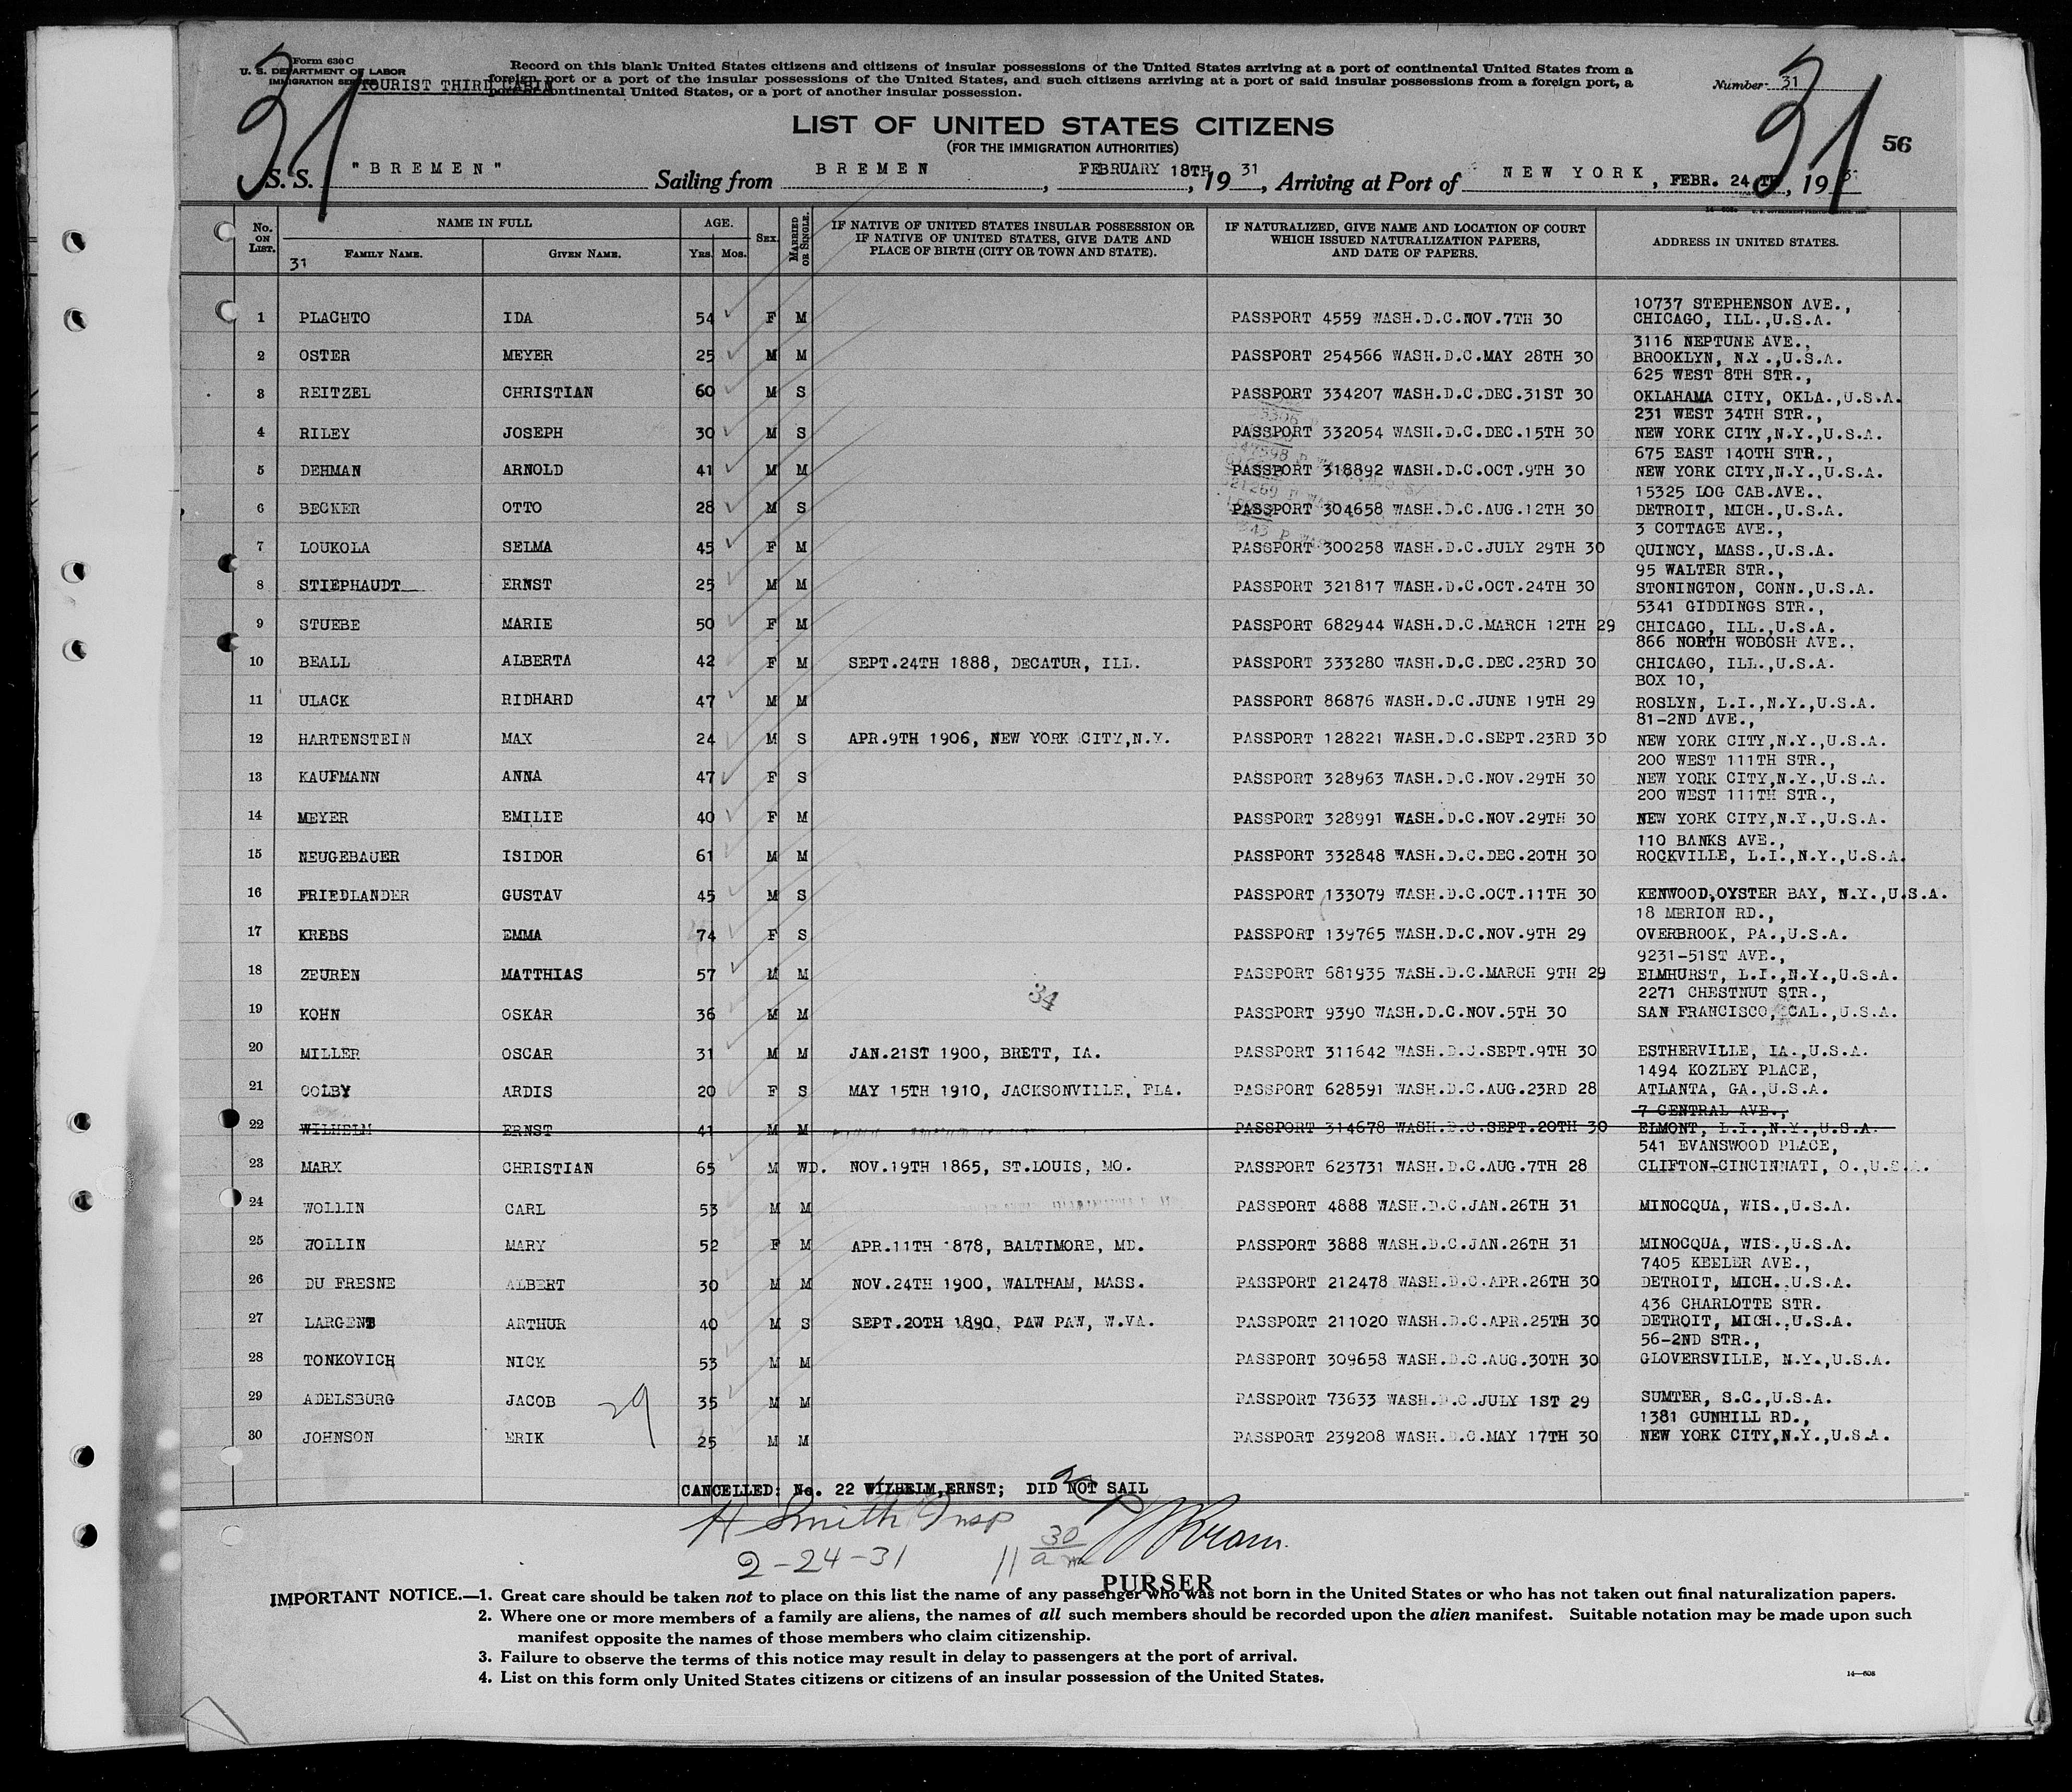 Form 630 C
U. S. DEPARTMENT OF LABOR
IMMIGRATION SERVICE
TOURIST THIRD CABIN
Record on this blank United States citizens and citizens of insular possessions of the United States arriving at a port of continental United States from a
foreign port or a port of the insular possessions of the United States, and such citizens arriving at a port of said insular possessions from a foreign port, a
port of continental United States, or a port of another insular possession.
Number 31
31
31
56
LIST OF UNITED STATES CITIZENS
(FOR THE IMMIGRATION AUTHORITIES)
S. S. "BREMEN" Sailing from BREMEN, FEBRUARY 18TH, 1931, Arriving at Port of NEW YORK, FEBR. 24TH, 1931
No. ON LIST. NAME IN FULL AGE. SEX. MARRIED OR SINGLE. IF NATIVE OF UNITED STATES INSULAR POSSESSION OR IF NATIVE OF UNITED STATES, GIVE DATE AND PLACE OF BIRTH (CITY OR TOWN AND STATE). IF NATURALIZED, GIVE NAME AND LOCATION OF COURT WHICH ISSUED NATURALIZATION PAPERS, AND DATE OF PAPERS. ADDRESS IN UNITED STATES.
31 FAMILY NAME. GIVEN NAME. YRS. MOS.
10737 STEPHENSON AVE.,
1 PLACHTO IDA 54 F M PASSPORT 4559 WASH.D.C.NOV.7TH 30 CHICAGO, ILL.,U.S.A.
3116 NEPTUNE AVE.,
2 OSTER MEYER 25 M M PASSPORT 254566 WASH.D.C.MAY 28TH 30 BROOKLYN, N.Y.,U.S.A.
625 WEST 8TH STR.,
3 REITZEL CHRISTIAN 60 M S PASSPORT 334207 WASH.D.C.DEC.31ST 30 OKLAHAMA CITY, OKLA.,U.S.A.
231 WEST 34TH STR.,
4 RILEY JOSEPH 30 M S PASSPORT 332054 WASH.D.C.DEC.15TH 30 NEW YORK CITY,N.Y.,U.S.A.
675 EAST 140TH STR.,
5 DEHMAN ARNOLD 41 M M PASSPORT 318892 WASH.D.C.OCT.9TH 30 NEW YORK CITY,N.Y.,U.S.A.
15325 LOG CAB.AVE..
6 BECKER OTTO 28 M S PASSPORT 304658 WASH.D.C.AUG.12TH 30 DETROIT, MICH.,U.S.A.
3 COTTAGE AVE.,
7 LOUKOLA SELMA 45 F M PASSPORT 300258 WASH.D.C.JULY 29TH 30 QUINCY, MASS.,U.S.A.
95 WALTER STR.,
8 STIEPHAUDT ERNST 25 M M PASSPORT 321817 WASH.D.C.OCT.24TH 30 STONINGTON, CONN.,U.S.A.
5341 GIDDINGS STR.,
9 STUEBE MARIE 50 F M PASSPORT 682944 WASH.D.C.MARCH 12TH 29 CHICAGO, ILL.,U.S.A.
866 NORTH WOBOSH AVE..
10 BEALL ALBERTA 42 F M SEPT.24TH 1888, DECATUR, ILL. PASSPORT 333280 WASH.D.C.DEC.23RD 30 CHICAGO, ILL.,U.S.A.
BOX 10,
11 ULACK RIDHARD 47 M M PASSPORT 86876 WASH.D.C.JUNE 19TH 29 ROSLYN, L.I.,N.Y.,U.S.A.
81-2ND AVE.,
12 HARTENSTEIN MAX 24 M S APR.9TH 1906, NEW YORK CITY,N.Y. PASSPORT 128221 WASH.D.C.SEPT.23RD 30 NEW YORK CITY,N.Y.,U.S.A.
200 WEST 111TH STR.,
13 KAUFMANN ANNA 47 F S PASSPORT 328963 WASH.D.C.NOV.29TH 30 NEW YORK CITY,N.Y.,U.S.A.
200 WEST 111TH STR.,
14 MEYER EMILIE 40 F M PASSPORT 328991 WASH.D.C.NOV.29TH 30 NEW YORK CITY,N.Y.,U.S.A.
110 BANKS AVE.,
15 NEUGEBAUER ISIDOR 61 M M PASSPORT 332848 WASH.D.C.DEC.20TH 30 ROCKVILLE, L.I.,N.Y.,U.S.A.
16 FRIEDLANDER GUSTAV 45 M S PASSPORT 133079 WASH.D.C.OCT.11TH 30 KENWOOD,OYSTER BAY, N.Y.,U.S.A.
18 MERION RD.,
17 KREBS EMMA 74 F S PASSPORT 139765 WASH.D.C.NOV.9TH 29 OVERBROOK, PA.,U.S.A.
9231-51ST AVE.,
18 ZEUREN MATTHIAS 57 M M PASSPORT 681935 WASH.D.C.MARCH 9TH 29 ELMHURST, L.I.,N.Y.,U.S.A.
34
2271 CHESTNUT STR.,
19 KOHN OSKAR 36 M M PASSPORT 9390 WASH.D.C.NOV.5TH 30 SAN FRANCISCO, CAL.,U.S.A.
20 MILLER OSCAR 31 M M JAN.21ST 1900, BRETT, IA. PASSPORT 311642 WASH.D.C.SEPT.9TH 30 ESTHERVILLE, IA.,U.S.A.
1494 KOZLEY PLACE,
21 COLBY ARDIS 20 F S MAY 15TH 1910, JACKSONVILLE, FLA. PASSPORT 628591 WASH.D.C.AUG.23RD 28 ATLANTA, GA.,U.S.A.
7 CENTRAL AVE.,
22 WILHELM ERNST 41 M M PASSPORT 314678 WASH.D.C.SEPT.20TH 30 ELMONT, L.I.,N.Y.,U.S.A.
541 EVANSWOOD PLACE,
23 MARX CHRISTIAN 65 M WD. NOV.19TH 1865, ST.LOUIS, MO. PASSPORT 623731 WASH.D.C.AUG.7TH 28 CLIFTON-CINCINNATI, O.,U.S.A.
24 WOLLIN CARL 53 M M PASSPORT 4888 WASH.D.C.JAN.26TH 31 MINOCQUA, WIS.,U.S.A.
25 WOLLIN MARY 52 F M APR.11TH 1878, BALTIMORE, MD. PASSPORT 3888 WASH.D.C.JAN.26TH 31 MINOCQUA, WIS.,U.S.A.
7405 KEELER AVE.,
26 DU FRESNE ALBERT 30 M M NOV.24TH 1900, WALTHAM, MASS. PASSPORT 212478 WASH.D.C.APR.26TH 30 DETROIT, MICH.,U.S.A.
436 CHARLOTTE STR.
27 LARGENT ARTHUR 40 M S SEPT.20TH 1890, PAW PAW, W.VA. PASSPORT 211020 WASH.D.C.APR.25TH 30 DETROIT, MICH.,U.S.A.
56-2ND STR.,
28 TONKOVICH NICK 53 M M PASSPORT 309658 WASH.D.C.AUG.30TH 30 GLOVERSVILLE, N.Y.,U.S.A.
29 ADELSBURG JACOB 29 35 M M PASSPORT 73633 WASH.D.C.JULY 1ST 29 SUMTER, S.C.,U.S.A.
1381 GUNHILL RD.,
30 JOHNSON ERIK 25 M M PASSPORT 239208 WASH.D.C.MAY 17TH 30 NEW YORK CITY,N.Y.,U.S.A.
CANCELLED: No. 22 WILHELM,ERNST; DID NOT SAIL
H Smith Insp
2-24-31 11 30 am
PURSER
IMPORTANT NOTICE.—1. Great care should be taken not to place on this list the name of any passenger who was not born in the United States or who has not taken out final naturalization papers.
2. Where one or more members of a family are aliens, the names of all such members should be recorded upon the alien manifest. Suitable notation may be made upon such
manifest opposite the names of those members who claim citizenship.
3. Failure to observe the terms of this notice may result in delay to passengers at the port of arrival.
4. List on this form only United States citizens or citizens of an insular possession of the United States.
14—608